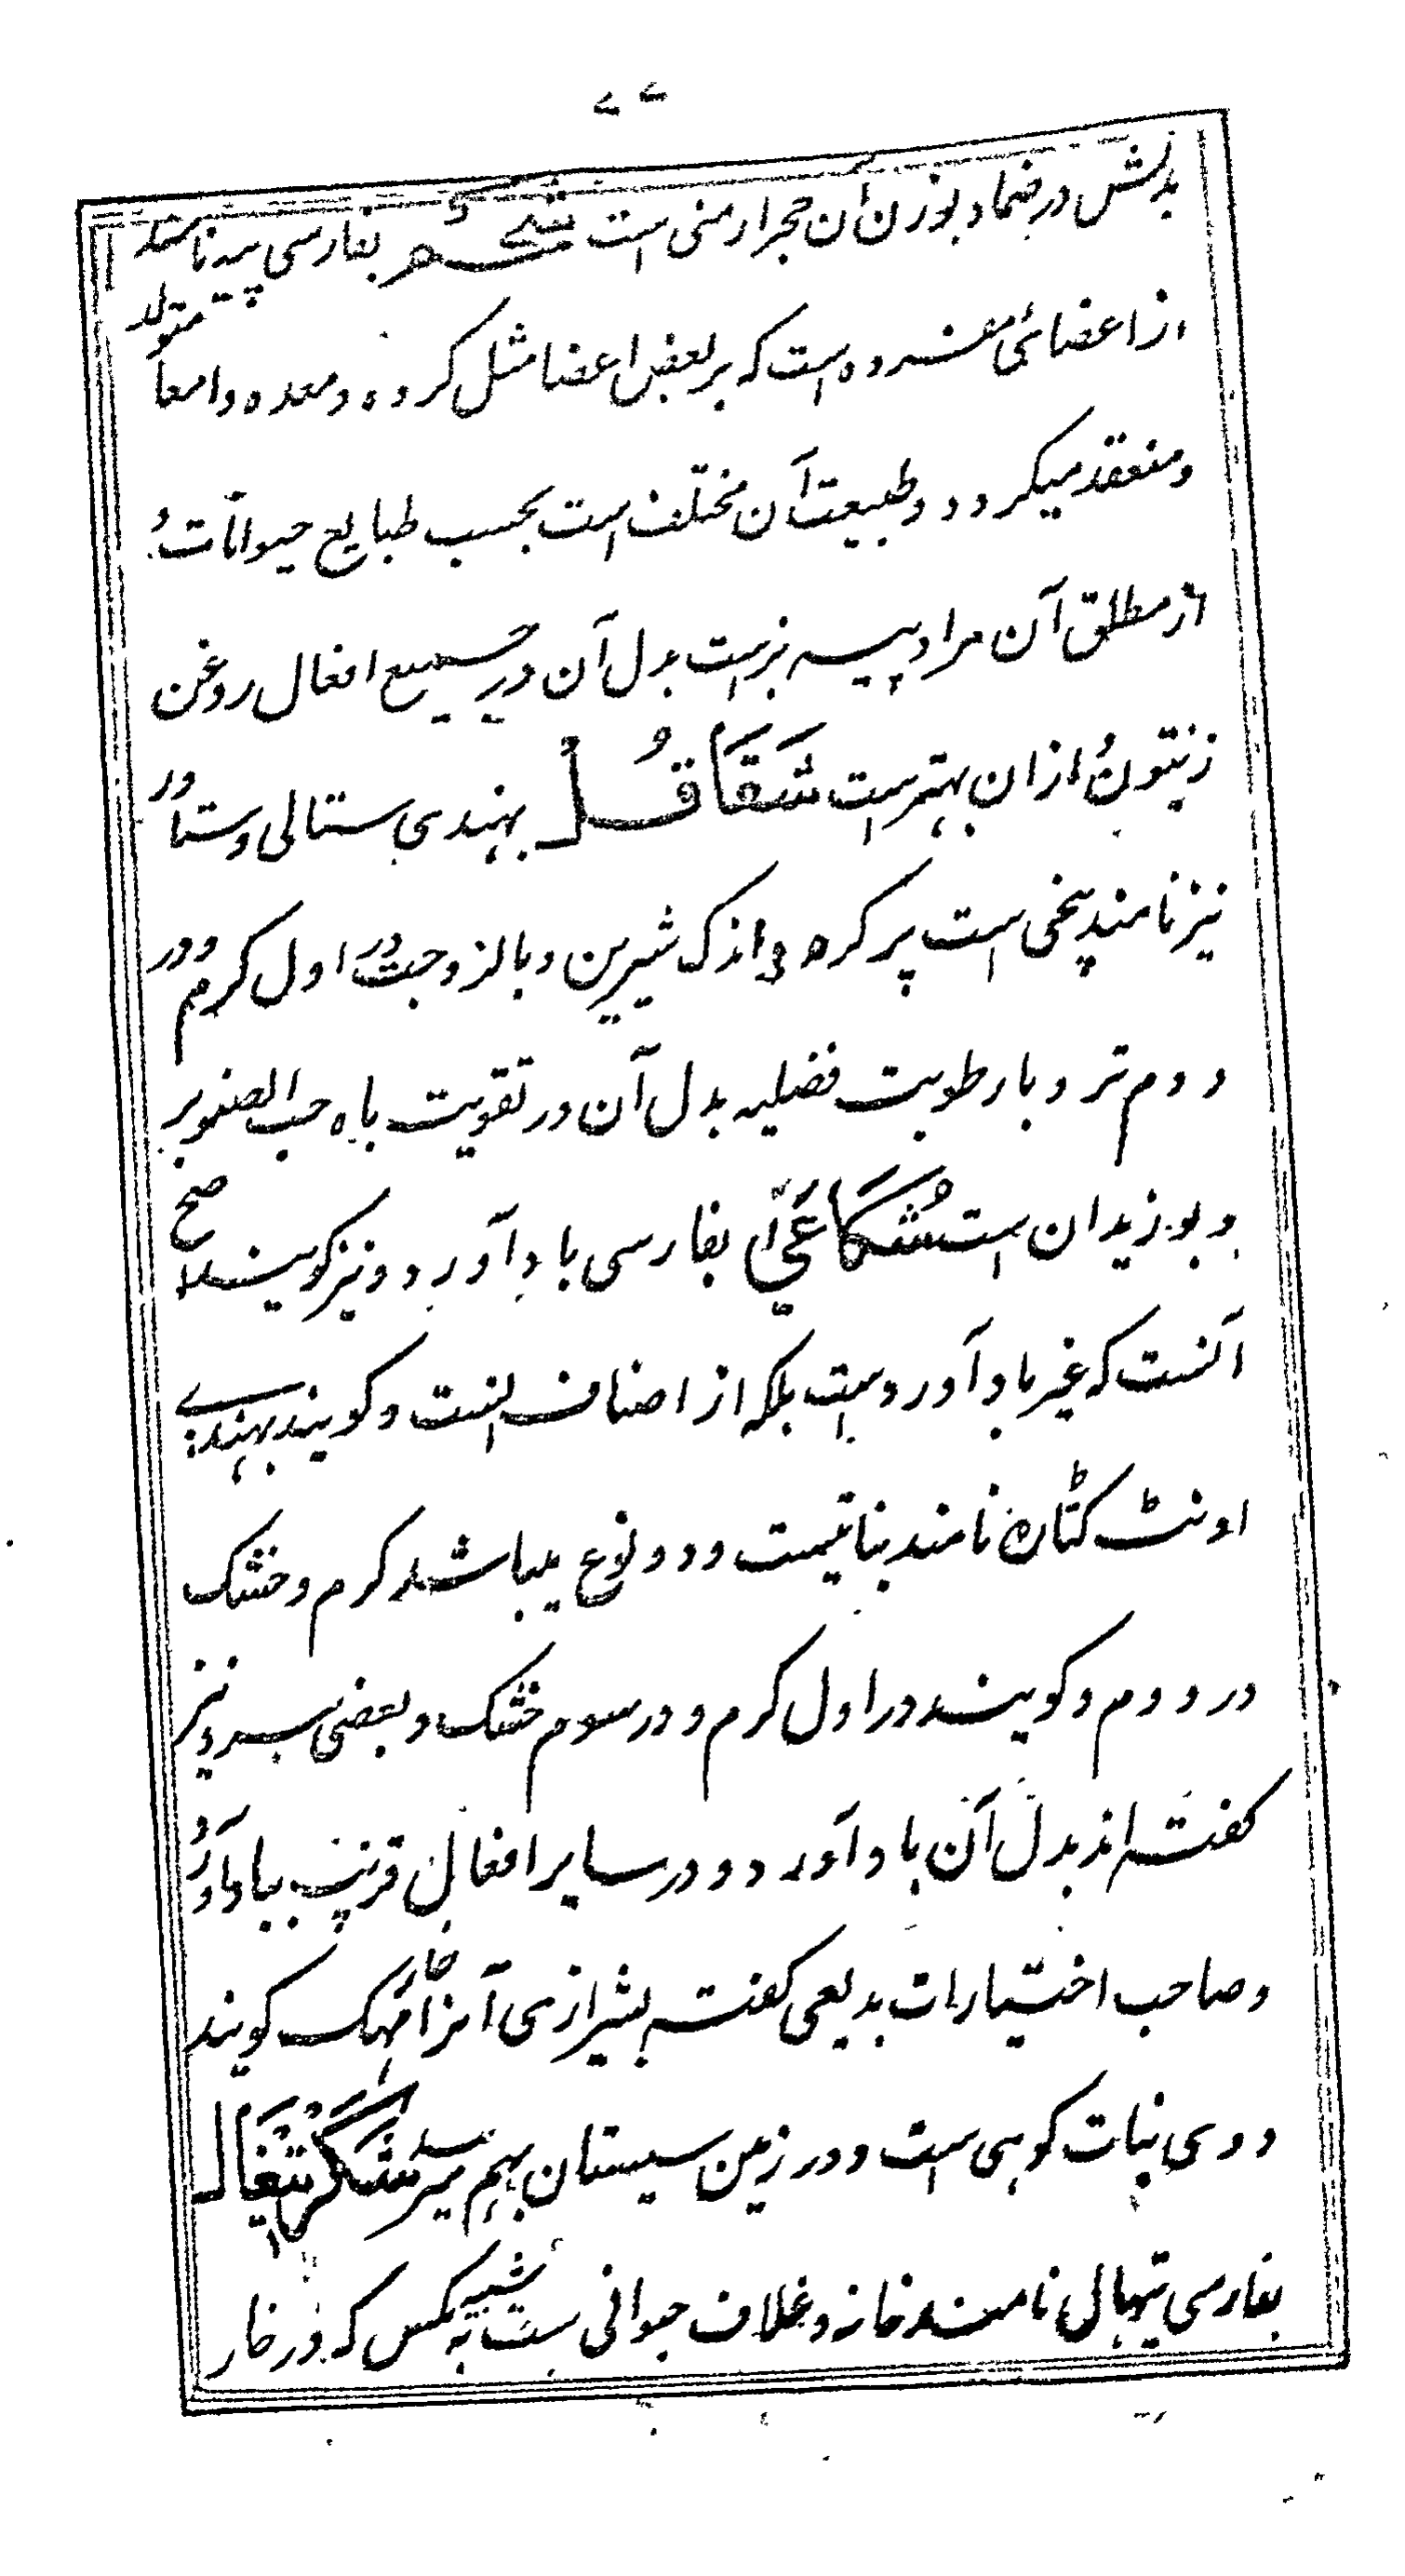 ۷۷
بدلش در ضماد بوزن آن حجر ارمنی است شحم بفارسی پیه نامند
از اعضائی مفرده است که بر بعض اعضا مثل کرده و معده و امعا متولد
و منعقد میکردد و طبیعت آن مختلف است بحسب طبایع حیوانات و
از مطلق آن مراد پیه بز است بدل آن در جمیع افعال روغن
زیتون و ازان بهتر است شقاقل بهندی ستالی و ستاور
نیز نامند بیخی است پر کره و اندک شیرین و با لزوجت در اول کرم و در
دوم تر و با رطوبت فضلیه بدل آن در تقویت باه حب الصنوبر
و بوزیدان است شکاعی بفارسی باد آورد و نیز کویند اصح
آنست که غیر باد آورد است بلکه از اصناف انست و کویند بهندے
اونٹ کٹاره نامند بناتیست و دو نوع میباشد کرم و خشک
در دوم و کویند در اول کرم و در سوم خشک و بعضی سرد نیز
کفته اند بدل آن باد آورد و در سایر افعال قریب بباد آورد و
و صاحب اختیارات بدیعی کفته بشیرازی آنرا خار مهک کویند
و وی نبات کوهی است و در زمین سیستان بهم میرسد شکر تیغال
بفارسی تیهال نامند خانه و غلاف حیوانی ست شبیه به مکس که در خار